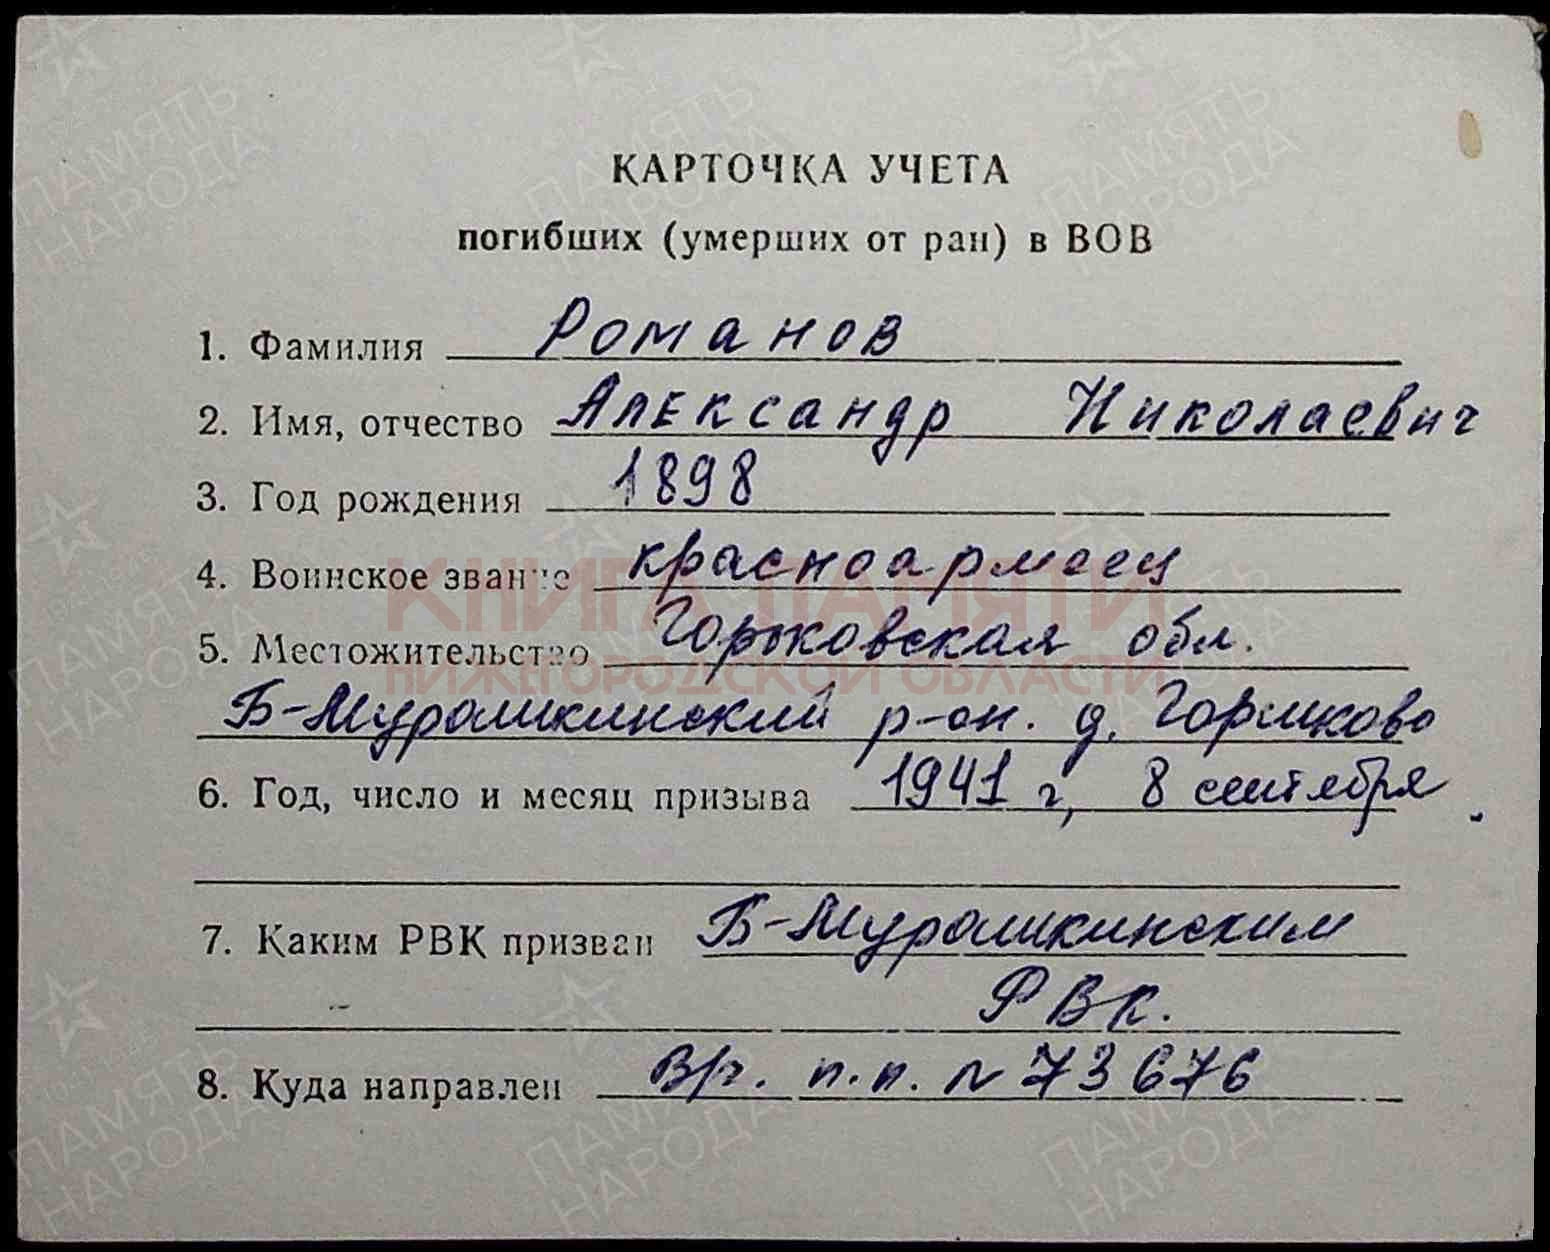 КАРТОЧКА УЧЕТА
погибших (умерших от ран) в ВОВ
1. Фамилия Романов
2. Имя, отчество Александр Николаевич
3. Год рождения 1898
4. Воинское звание красноармеец
5. Местожительство Горьковская обл.
Б-Мурашкинский р-он. д. Горшково
6. Год, число и месяц призыва 1941 г, 8 сентября.
7. Каким РВК призван Б-Мурашкинским
РВК.
8. Куда направлен п.п. N 73676
КНИГА ПАМЯТИ
НИЖЕГОРОДСКОЙ ОБЛАСТИ
ПАМЯТЬ НАРОДА